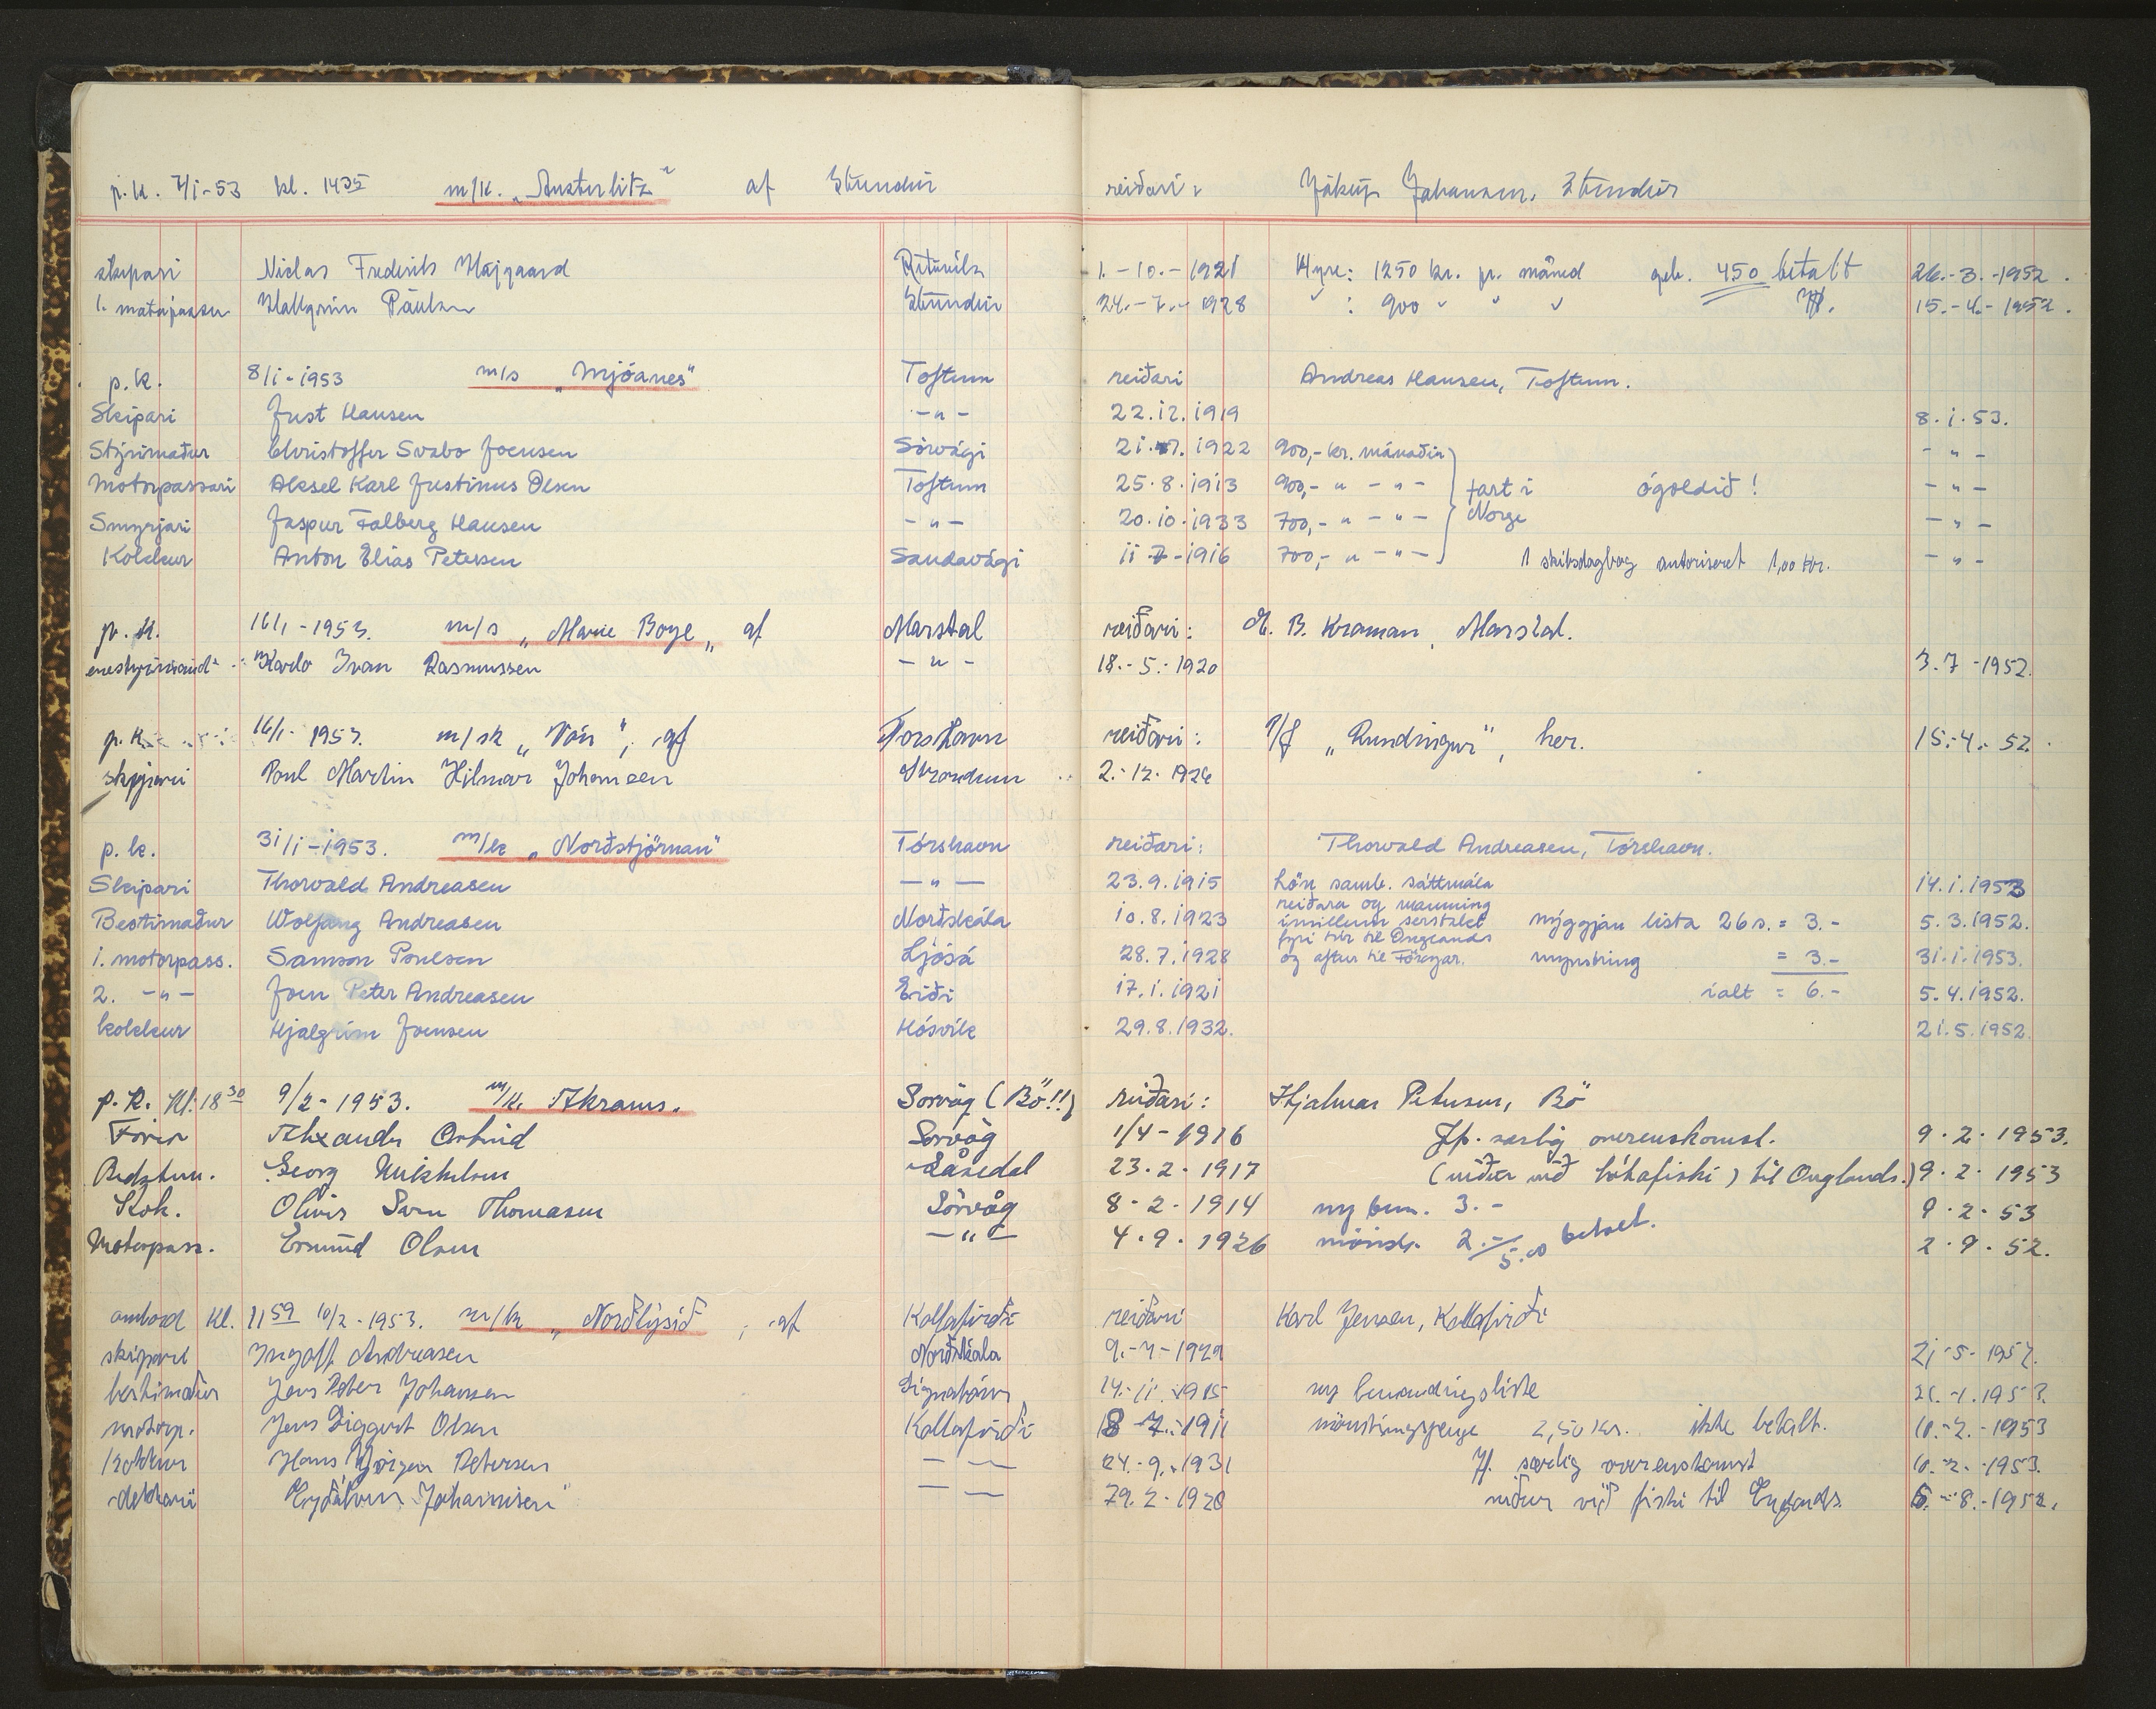 p.k. 7/1-53 kl. 1435 m/k. „Austerlitz" af Stendur reiðari: Jákup Johansen, Stendur
skipari Niclas Frederik Højgaard Rituvík 1.-10.-1921 Hyre: 1250 kr. pr. måned geb. 450 betalt 26.-3.-1952.
1. motorpassari Hallgrím Paulsen Stendur 24.-7.-1928 " : 900 " " " 15.-4.-1952.
p.k. 8/1-1953 m/s „Mjóanes" Toftum reiðari Andreas Hansen, Toftum.
Skipari Just Hansen -"- 22.12.1919 8.1.53.
Stýrimaður Christoffer Svabo Joensen Sörvági 21.7.1922 900,- kr. mánaðin -"-
Motorpassari Aksel Karl Justinus Olsen Toftum 25.8.1913 900,- " -"- fart i Norge ógoldið! -"-
Smyrjari Jaspur Falberg Hansen -"- 20.10.1933 700,- " -"- -"-
Kokkur Anton Elias Petersen Sandavági 11-7-1916 700,- " -"- 1 skibsdagbog autoriseret 1,00 kr. -"-
p.k. 16/1-1953. m/s „Marie Boye„ af Marstal reiðari: H. B. Kroman, Marstal.
enestyrimand Karlo Ivan Rasmussen -"- 18.-5.-1920 3.7-1952.
p.k. 16/1-1953. m/sk „Vón", af Torshavn reiðari: P/f „Rundingur", her. 15.-4.-52.
skipari Poul Martin Hilmar Johansen Strondum 2.-12.1926
p.k. 31/1-1953. m/k „Norðstjörnan" Tórshavn reiðari: Thorvald Andreasen, Tórshavn.
Skipari Thorvald Andreasen -"- 23.9.1915 Løn samb. sáttmála 14.1.1953
Bestimaður Wolfgang Andreasen Norðskála 10.8.1923 reiðara og manning ímillum serstakt nýggjan lista 26 s. = 3.- 5.3.1952.
1. motorpass. Samson Poulsen Ljósá 28.7.1928 fyri túr til Onglands og aftur til Föroyar. mynstring = 3.- 31.1.1953.
2. -"- Joen Peter Andreasen Eiði 17.1.1921 ialt = 6.- 5.4.1952.
kokkur Hjalgrím Joensen Hósvík 29.8.1932. 21.5.1952.
p.k. Kl. 1830 9/2-1953. m/k. Akranes. Sorvåg (Bö!!) reiðari: Hjalmar Petersen, Bö
Fører Alexander Østrið Sorvåg 1/4-1916 Jfr. særlig overenskomst. 9.2.1953.
Bedstem. Georg Mikkelsen Låsedal 23.2-1917 (niður við bátafiski) til Onglands.) 9.2.1953
Kok. Oliver Sven Thomasen Sörvåg 8-2-1914 ny bem. 3.- 9.2.53
Motorpass. Ermund Olsen -"- 4.9.1926 mönstr. 2.- 5.00 betalt. 2.9.52.
ombord Kl. 1159 10/2-1953. m/k „Norðlýsið", af Kollafirði reiðari Karl Jensen, Kollafirði
skipari Ingolf Andreasen Norðskála 9.-4-1929 21-5-1952.
bestimaður Jens Peter Johansen Signabøur 14.-11.1915 ny bemandingsliste 26.-1.1953.
motorp. Jens Siggert Olsen Kollafirði 18-7.-1911 mönstringspenge 2,50 kr. ikke betalt. 10.-2.-1953
Kokkur Hans Jørgen Petersen — — 24.-9.-1931 Jf. særlig overenskomst 10.-2.-1953.
dekkari Eyðálvur Johannesen — — 29.2-1928 niður við fiski til Englands. 6.-8.-1952.